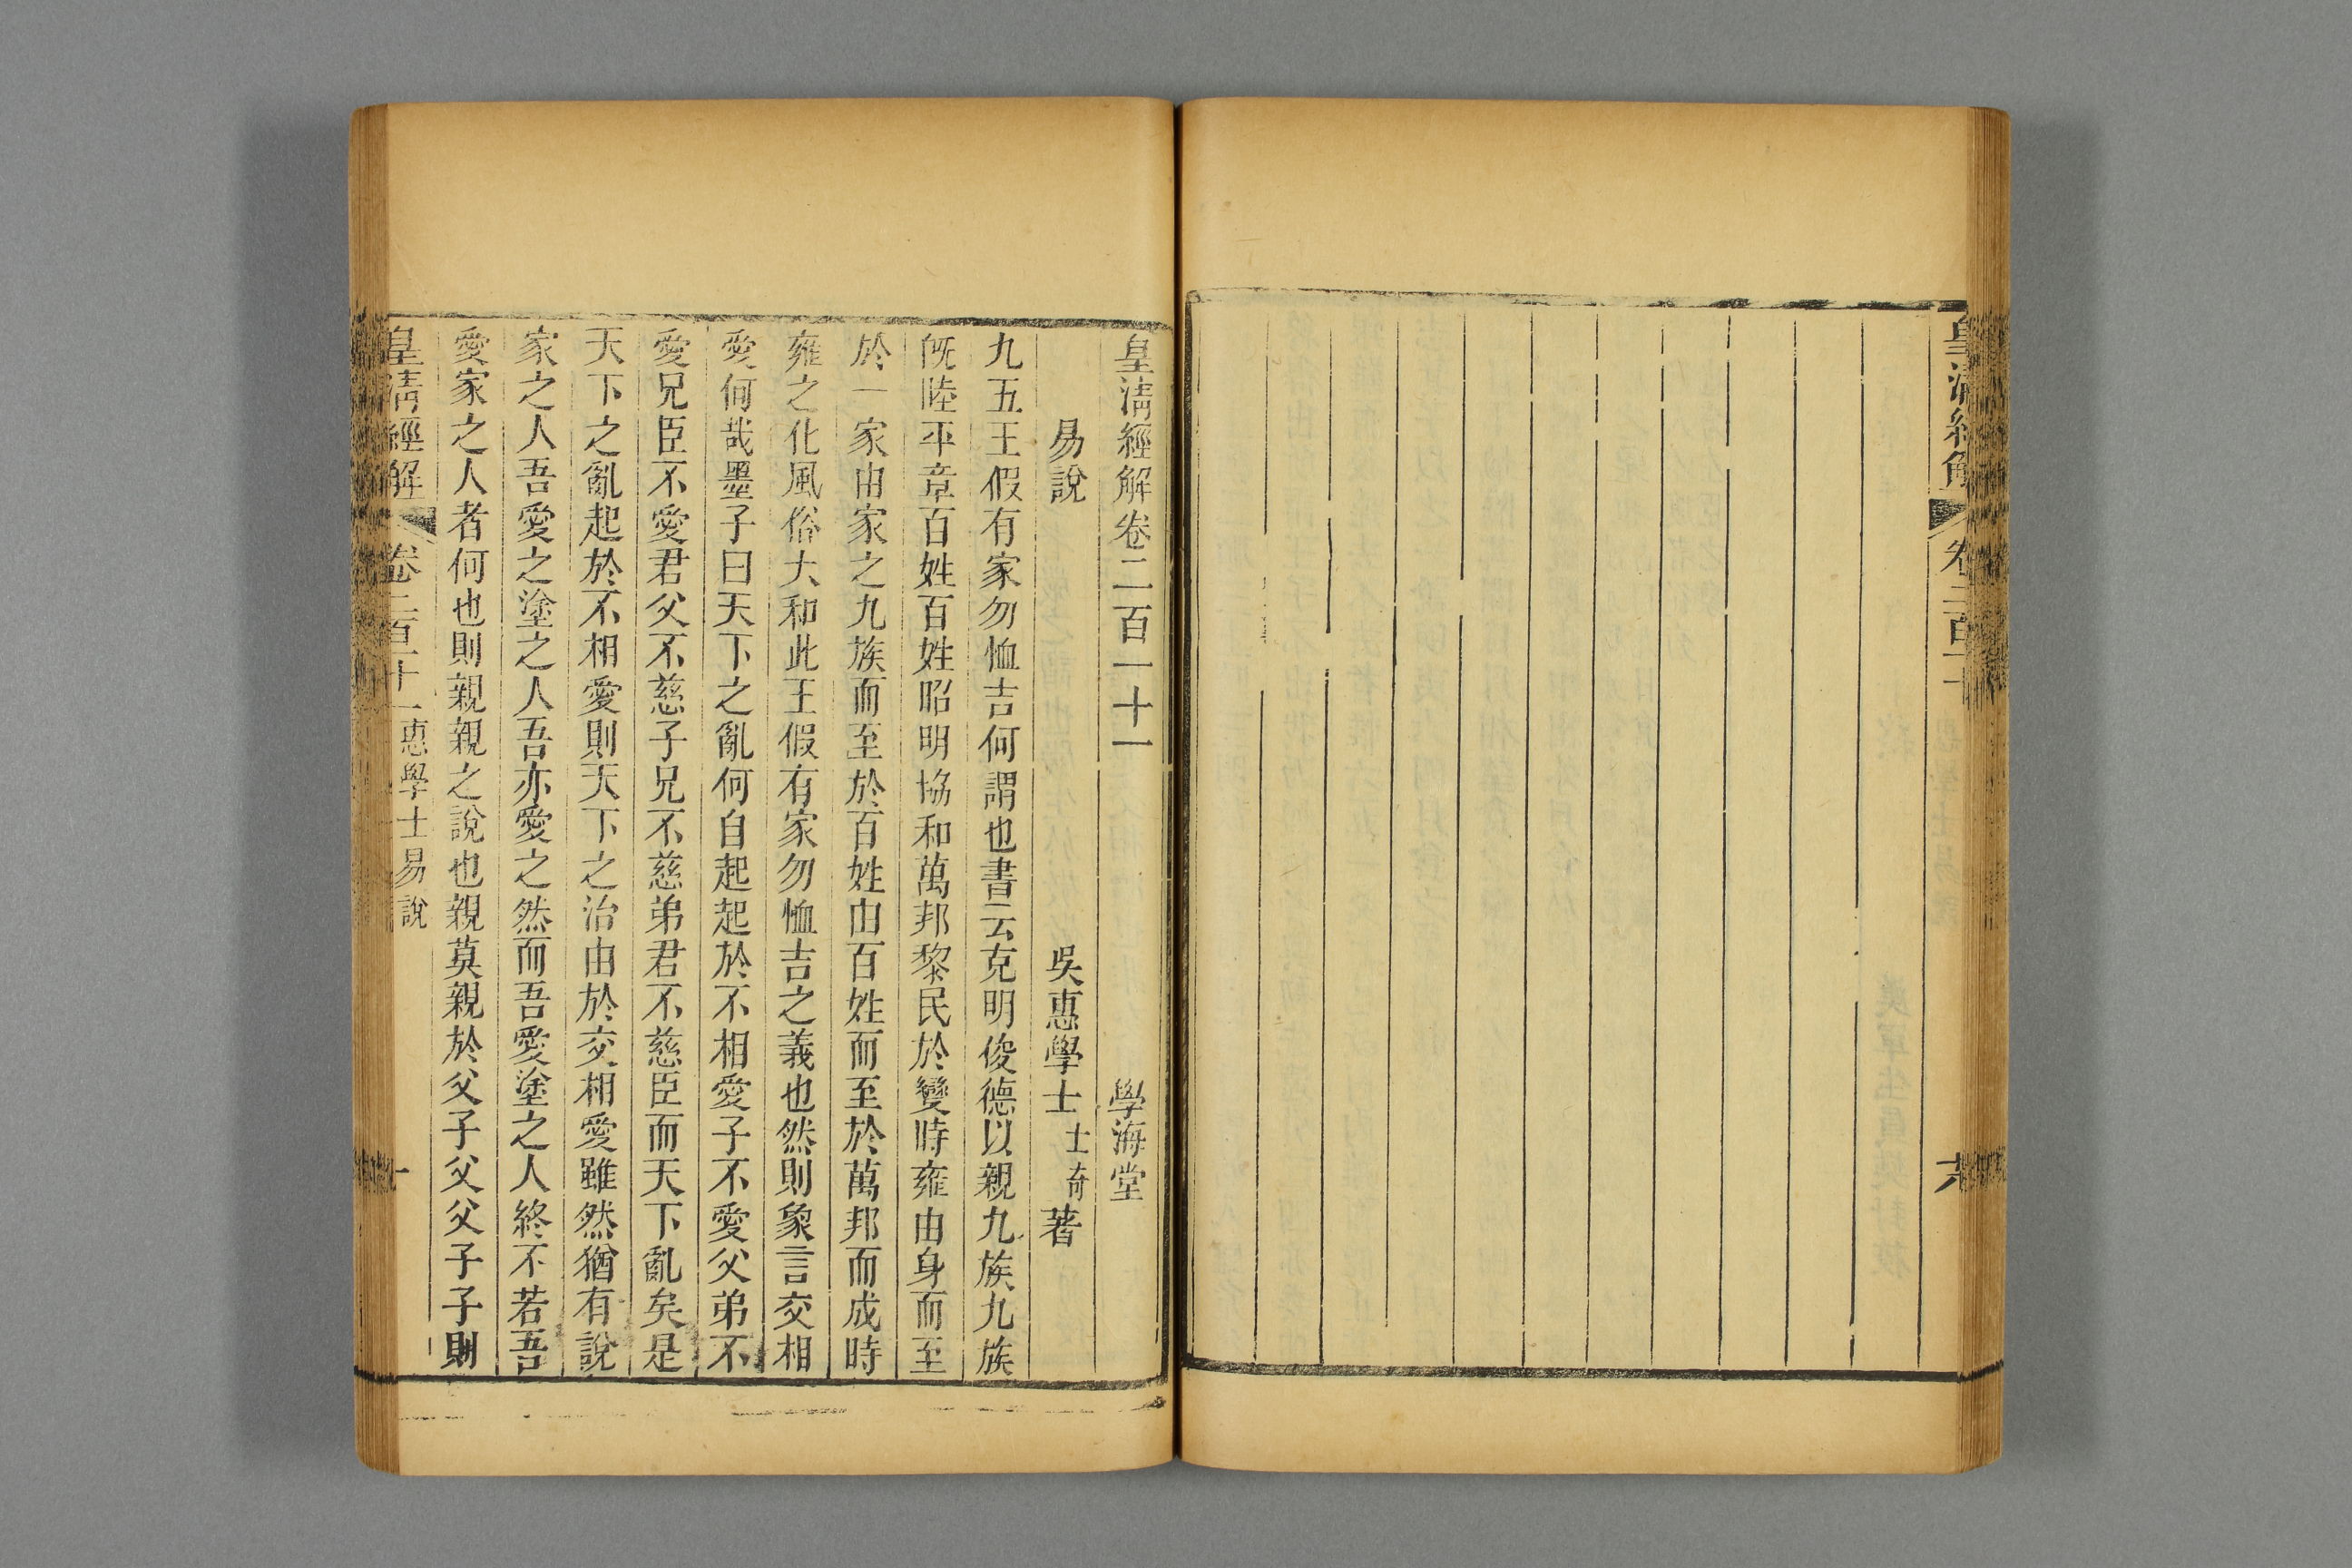 皇清經解 卷二百十 六
皇淸經解卷二百一十一 學海堂
易說 吳惠學士士奇著
九五王假有家勿恤吉何謂也書云克明俊德以親九族九族
旣陸平章百姓百姓昭明協和萬邦黎民於變時雍由身而至
於一家由家之九族而至於百姓由百姓而至於萬邦而成時
雍之化風俗大和此王假有家勿恤吉之義也然則象言交相
愛何哉墨子曰天下之亂何自起起於不相愛子不愛父弟不
愛兄臣不愛君父不慈子兄不慈弟君不慈臣而天下亂矣是
天下之亂起於不相愛則天下之治由於交相愛雖然猶有說
家之人吾愛之塗之人吾亦愛之然而吾愛塗之人終不若吾
愛家之人者何也則親親之說也親莫親於父子父父子子則
皇淸經解 卷二百十一惠學士易說 一